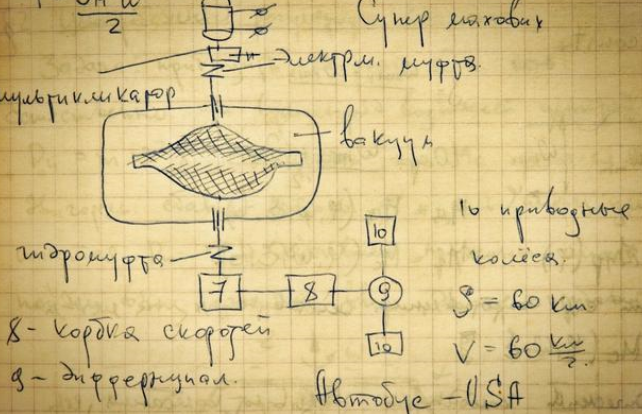 2
Супер маховик
электрм. муфта.
мультикликатор
вакуум
10 приводные
колёса.
гидромуфта
10
7 8 9
10
S = 60 км
V = 60 км/г.
8 - коробка скоростей
9 - дифференциал.
Автобус - USA